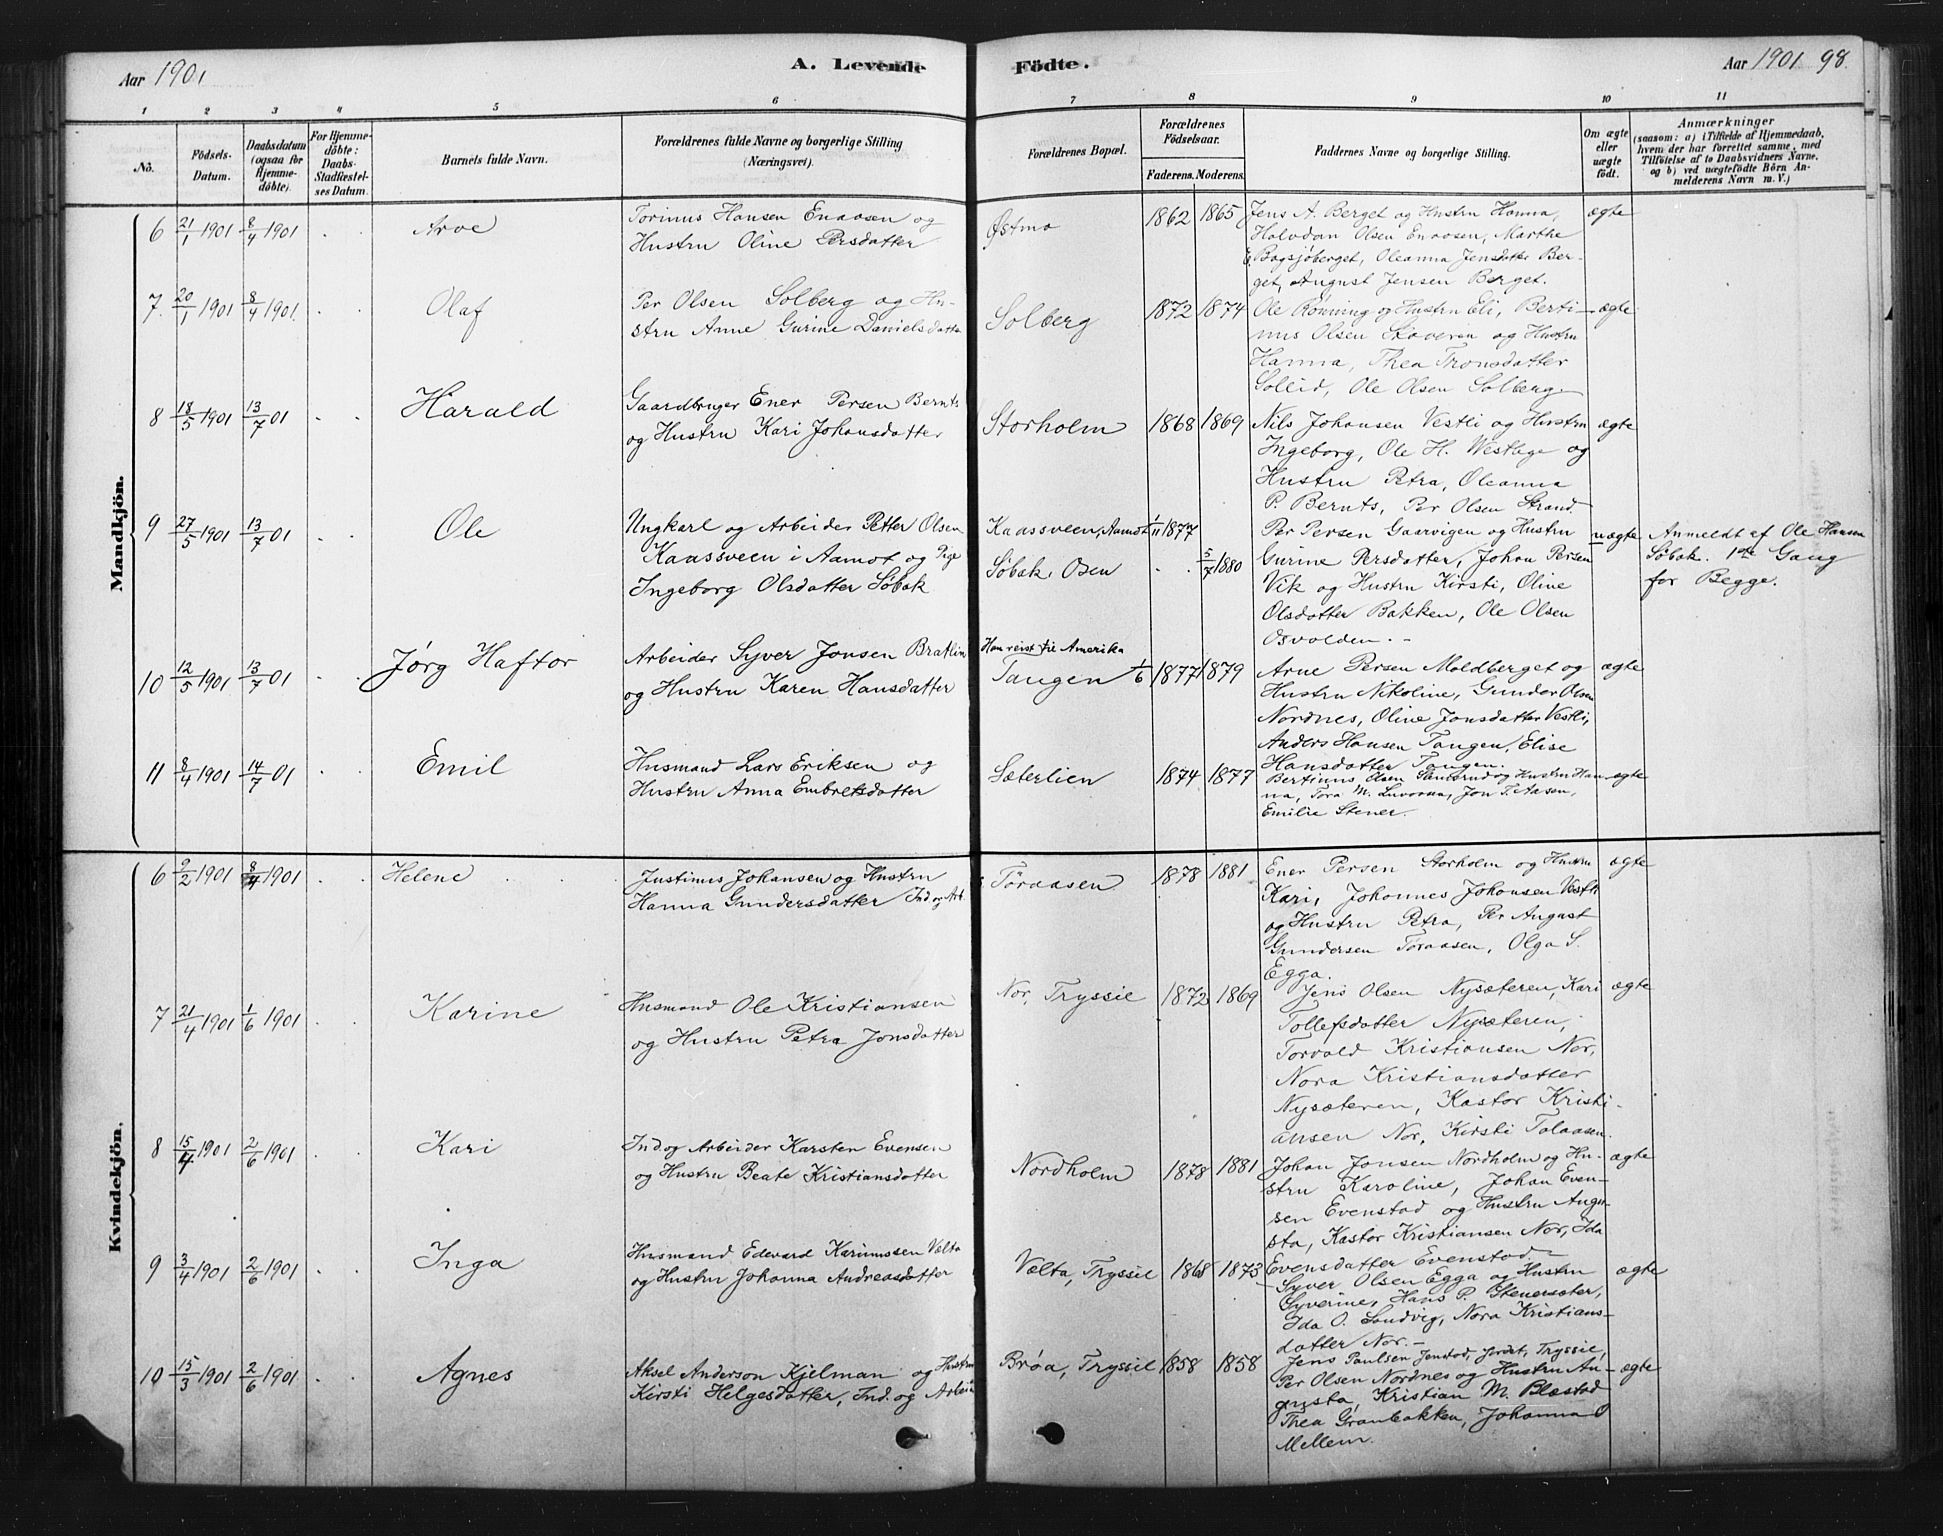 Aar 1901
A. Levende
Födte.
Aar 1901 98.
1 2 3 4 5 6 7 8 9 10 11
No.
Födsels-Datum.
Daabsdatum (ogsaa for Hjemme-döbte).
For Hjemme-döbte: Daabs-Stadfæstel-ses Datum.
Barnets fulde Navn.
Forældrenes fulde Navne og borgerlige Stilling (Næringsvei).
Forældrenes Bopæl.
Forældrenes Födselsaar.
Faderens. Moderens.
Faddernes Navne og borgerlige Stilling.
Om ægte eller uægte födt.
Anmærkninger
(saasom: a) i Tilfælde af Hjemmedaab,
hvem der har forrettet samme, med
Tilföielse af to Daabsvidners Navne,
og b) ved uægtefödte Börn An-
melderens Navn m. V.)
Mandkjön.
6 21/1 1901 8/4 1901 . . Arve
Torinus Hansen Enaasen og
Hustru Oline Persdatter
Østmo 1862 1865
Jens A. Berget og Hustru Hanna,
Halvdan Olsen Enaasen, Marthe
Bogsjøberget, Oleanna Jensdatte Ber-
get, August Jensen Berget.
ægte
7. 20/1 1901 8/4 1901. . . Olaf
Per Olsen Solberg og Hu-
stru Anne Gurine Danielsdatter
Solberg 1872 1874
Ole Rønning og Hustru Eli, Berti-
nus Olsen Støveren og Hustru
Hanna, Thea Tronsdatter
Sollid, Ole Olsen Solberg.
ægte
8 18/5 1901 13/7 01 . . Harald
Gaardbruger Ener Persen Bernts
og Hustru Kari Johansdatter
Storholm 1868 1869
Nils Johansen Vestli og Hustru
Ingeborg, Ole H. Westlge og
Hustru Petra, Oleanna
P. Bernts, Per Olsen Strand.
ægte
9 27/5 1901 13/7 01 . . Ole
Ungkarl og Arbeider Petter Olsen
Kaassveen i Aamot og Pige
Ingeborg Olsdatter Søbak
Kaassveen, Aamot 1/11 1877
Søbak, Osen . . 5/7 1880
Per Persen Gaarvigen og Hustru
Gurine Persdatter, Johan Persen
Vik og Hustru Kirsti, Oline
Olsdatter Bakken, Ole Olsen
Osvolden. -
uægte
Anmeldt af Ole Hansen
Søbak. 1ste Gang
for Begge.
10 12/5 1901 13/7 01 . . Jørg Haftor
Arbeider Syver Jonsen Bratlien
og Hustru Karen Hansdatter
Han reist til Amerika
Tangen 1/6 1877 1879
Arne Persen Moldberget og
Hustru Nikoline, Gunder Olsen
Nordnes, Oline Jonsdatter Vestli,
Anders Hansen Tangen, Elise
Hansdatter Tangen.
ægte
11 8/4 1901 14/7 01 . . Emil
Husmand Lars Eriksen og
Hustru Anna Embretsdatter
Sæterlien 1874 1877
Bertinus Olsen og Hustru Han-
na, Tora M. Jon T. Aasen,
Emilie Stener.
ægte
Kvindekjön.
6 9/2 1901 8/4 1901 . . Helene
Justinus Johansen og Hustru
Hanna Gundersdatter Ind. og Arb.
Töraasen 1878 1881
Ener Persen Storholm og Hustru
Kari, Johannes Johansen Vestli
og Hustru Petra, Per August
Gundersen Töraasen, Olga S.
Egga.
ægte
7 21/4 1901 1/6 1901 . . Karine
Husmand Ole Kristiansen
og Hustru Petra Jonsdatter
Nor, Tryssil 1872 1869
Jens Olsen Nysæteren, Kari
Tollefsdatter Nysæteren,
Torvald Kristiansen Nor,
Nora Kristiansdatter
Nysæteren, Kastor Kristi-
ansen Nor, Kirsti Tolaasen.
ægte
8 15/4 1901 2/6 1901 . . Kari
Ind. og Arbeider Karsten Evensen
og Hustru Beate Kristiansdatter
Nordholm 1878 1881
Johan Jonsen Nordholm og Hu-
stru Karoline, Johan Even-
sen Evenstad og Hustru Augu-
sta, Kastor Kristiansen Nor, Ida
Evensdatter Evenstad
ægte
9 3/4 1901 2/6 1901 . . Inga
Husmand Edevard Karinussen Vælta
og Hustru Johanna Andreasdatter
Vælta, Tryssil 1868 1873
Syver Olsen Egga og Hustru
Syverine, Hans P. Stenersæter,
Ida O. Sandvig, Nora Kristians-
datter Nor. -
ægte
10 15/3 1901 2/6 1901 . . Agnes
Aksel Anderson Kjelman og Hustru
Kirsti Helgesdatter, Ind. og Arbeider
Brøa, Tryssil 1858 1858
Jens Paulsen Jenstad, Jordet, Tryssil,
Per Olsen Nordnes og Hustru Au-
gusta, Kristian M. Blæstad
Thea Granbakken, Johanna O
Mellem.
ægte